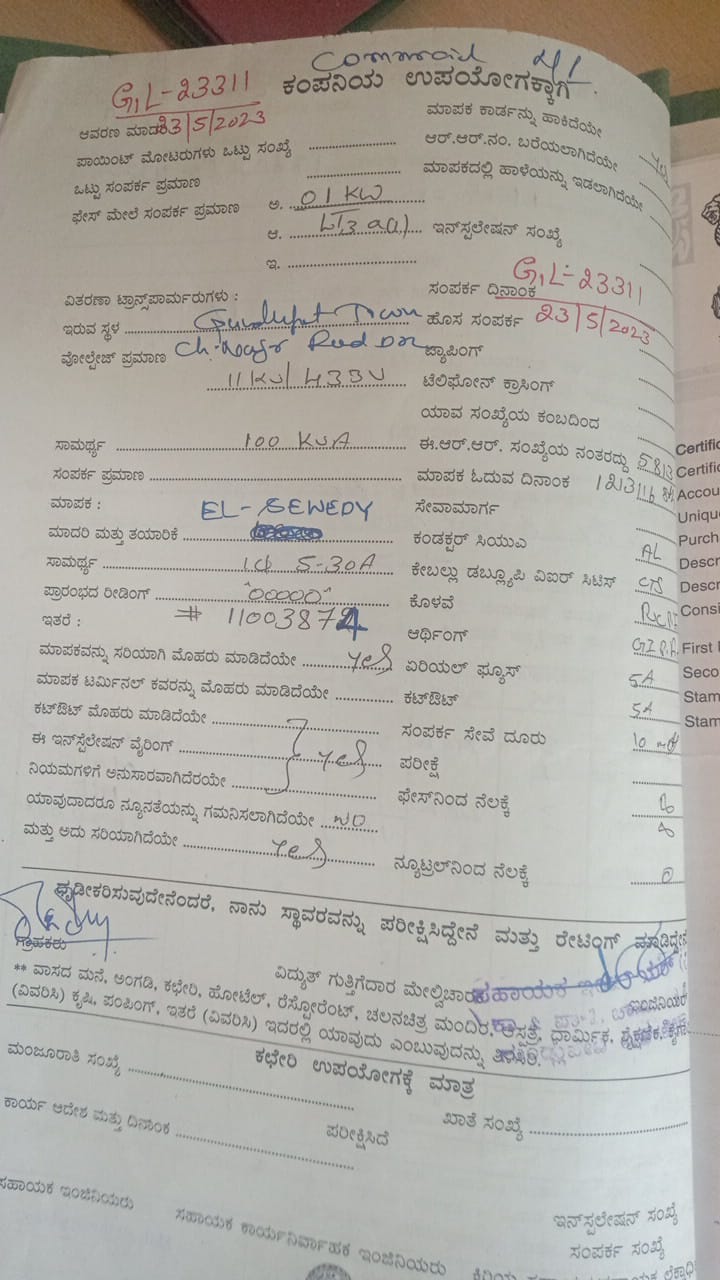 Commercial
G,L-23311 ಕಂಪನಿಯ ಉಪಯೋಗಕ್ಕಾಗಿ
23/5/2023
ಆವರಣ ಮಾದರಿ
ಮಾಪಕ ಕಾರ್ಡನ್ನು ಹಾಕಿದೆಯೇ
ಪಾಯಿಂಟ್ ಮೋಟರುಗಳು ಒಟ್ಟು ಸಂಖ್ಯೆ
ಆರ್.ಆರ್.ನಂ. ಬರೆಯಲಾಗಿದೆಯೇ Yes
ಒಟ್ಟು ಸಂಪರ್ಕ ಪ್ರಮಾಣ
ಮಾಪಕದಲ್ಲಿ ಹಾಳೆಯನ್ನು ಇಡಲಾಗಿದೆಯೇ
ಫೇಸ್ ಮೇಲೆ ಸಂಪರ್ಕ ಪ್ರಮಾಣ ಅ. 01 KW
ಆ. LT3 ಇನ್‌ಸ್ಪಲೇಷನ್ ಸಂಖ್ಯೆ
ಇ.
G,L-23311
ವಿತರಣಾ ಟ್ರಾನ್ಸ್‌ಪಾರ್ಮರುಗಳು :
ಸಂಪರ್ಕ ದಿನಾಂಕ
ಇರುವ ಸ್ಥಳ Gundlupet Town
ಹೊಸ ಸಂಪರ್ಕ 23/5/2023
ವೋಲ್ಟೇಜ್ ಪ್ರಮಾಣ Ch.nagar Rad
ಟ್ಯಾಪಿಂಗ್
11KV/433V ಟೆಲಿಫೋನ್ ಕ್ರಾಸಿಂಗ್
ಯಾವ ಸಂಖ್ಯೆಯ ಕಂಬದಿಂದ
ಸಾಮರ್ಥ್ಯ 100 KVA ಈ.ಆರ್.ಆರ್. ಸಂಖ್ಯೆಯ ನಂತರದ್ದು 5813
ಸಂಪರ್ಕ ಪ್ರಮಾಣ ಮಾಪಕ ಓದುವ ದಿನಾಂಕ
ಮಾಪಕ : EL-SEWEDY ಸೇವಾಮಾರ್ಗ
ಮಾದರಿ ಮತ್ತು ತಯಾರಿಕೆ ಕಂಡಕ್ಟರ್ ಸಿಯುಎ AL
ಸಾಮರ್ಥ್ಯ 1ф 5-30A ಕೇಬಲ್ಲು ಡಬ್ಲ್ಯೂಪಿ ವಿಐರ್ ಸಿಟಿಸ್
ಪ್ರಾರಂಭದ ರೀಡಿಂಗ್ "00000" ಕೊಳವೆ
ಇತರೆ : # 11003874 ಆರ್ಥಿಂಗ್
ಮಾಪಕವನ್ನು ಸರಿಯಾಗಿ ಮೊಹರು ಮಾಡಿದೆಯೇ yes ಏರಿಯಲ್ ಫ್ಯೂಸ್ 5A
ಮಾಪಕ ಟರ್ಮಿನಲ್ ಕವರನ್ನು ಮೊಹರು ಮಾಡಿದೆಯೇ ಕಟ್‌ಔಟ್ 5A
ಕಟ್‌ಔಟ್ ಮೊಹರು ಮಾಡಿದೆಯೇ ಸಂಪರ್ಕ ಸೇವೆ ದೂರು
ಈ ಇನ್‌ಸ್ಪಲೇಷನ್ ವೈರಿಂಗ್ yes ಪರೀಕ್ಷೆ
ನಿಯಮಗಳಿಗೆ ಅನುಸಾರವಾಗಿದೆರಯೇ ಫೇಸ್‌ನಿಂದ ನೆಲಕ್ಕೆ
ಯಾವುದಾದರೂ ನ್ಯೂನತೆಯನ್ನು ಗಮನಿಸಲಾಗಿದೆಯೇ NO
ಮತ್ತು ಅದು ಸರಿಯಾಗಿದೆಯೇ Yes ನ್ಯೂಟ್ರಲ್‌ನಿಂದ ನೆಲಕ್ಕೆ 0
ಧೃಡೀಕರಿಸುವುದೇನೆಂದರೆ, ನಾನು ಸ್ಥಾವರವನ್ನು ಪರೀಕ್ಷಿಸಿದ್ದೇನೆ ಮತ್ತು ರೇಟಿಂಗ್ ಮಾಡಿದ್ದೇನೆ
ಗ್ರಾಹಕರು
ವಿದ್ಯುತ್ ಗುತ್ತಿಗೆದಾರ ಮೇಲ್ವಿಚಾರಕ
ಇಂಜಿನಿಯರ್
** ವಾಸದ ಮನೆ, ಅಂಗಡಿ, ಕಛೇರಿ, ಹೋಟೆಲ್, ರೆಸ್ಟೋರೆಂಟ್, ಚಲನಚಿತ್ರ ಮಂದಿರ, ಆಸ್ಪತ್ರೆ, ಧಾರ್ಮಿಕ, ಶೈಕ್ಷಣಿಕ,
(ವಿವರಿಸಿ) ಕೃಷಿ, ಪಂಪಿಂಗ್, ಇತರೆ (ವಿವರಿಸಿ) ಇದರಲ್ಲಿ ಯಾವುದು ಎಂಬುವುದನ್ನು ತಿಳಿಸಿರಿ.
ಕಛೇರಿ ಉಪಯೋಗಕ್ಕೆ ಮಾತ್ರ
ಮಂಜೂರಾತಿ ಸಂಖ್ಯೆ
ಖಾತೆ ಸಂಖ್ಯೆ
ಕಾರ್ಯ ಆದೇಶ ಮತ್ತು ದಿನಾಂಕ
ಪರೀಕ್ಷಿಸಿದೆ
ಸಹಾಯಕ ಇಂಜಿನಿಯರು
ಸಹಾಯಕ ಕಾರ್ಯನಿರ್ವಾಹಕ ಇಂಜಿನಿಯರು
ಇನ್‌ಸ್ಪಲೇಷನ್ ಸಂಖ್ಯೆ
ಸಂಪರ್ಕ ಸಂಖ್ಯೆ
Certific
Certific
Accou
Uniqu
Purch
Descr
Descr
Consi
First
Seco
Stam
Stam